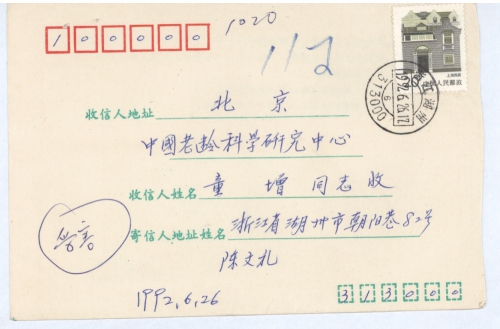 100000
1020
112
上海民居
中国人民邮政
浙江 湖州
1992.6.26.17
6
313000
收信人地址 北京
中國老龄科学研究中心
收信人姓名 童增 同志 收
寄信人地址姓名 浙江省湖州市朝阳巷82号
陈文礼
1992.6.26
313000